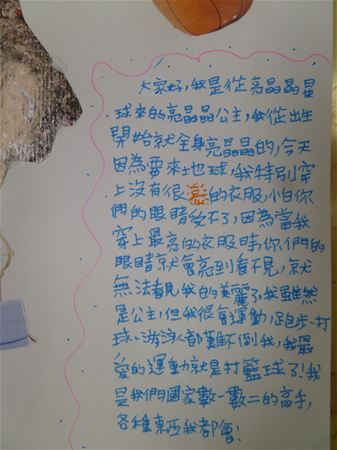 大家好，我是從亮晶晶星
球來的亮晶晶公主，我從出生
開始就全身亮晶晶的，今天
因為要來地球，我特別穿
上沒有很亮的衣服，小白你
們的眼睛受不了，因為當我
穿上最亮的衣服時，你們的
眼睛就會亮到看不見，就
無法看見我的美麗了，我雖然
是公主，但我很會運動，跑步、打
球、游泳都難不倒我，我最
愛的運動就是打籃球了！我
是我們國家數一數二的高手，
各種東西我都會！